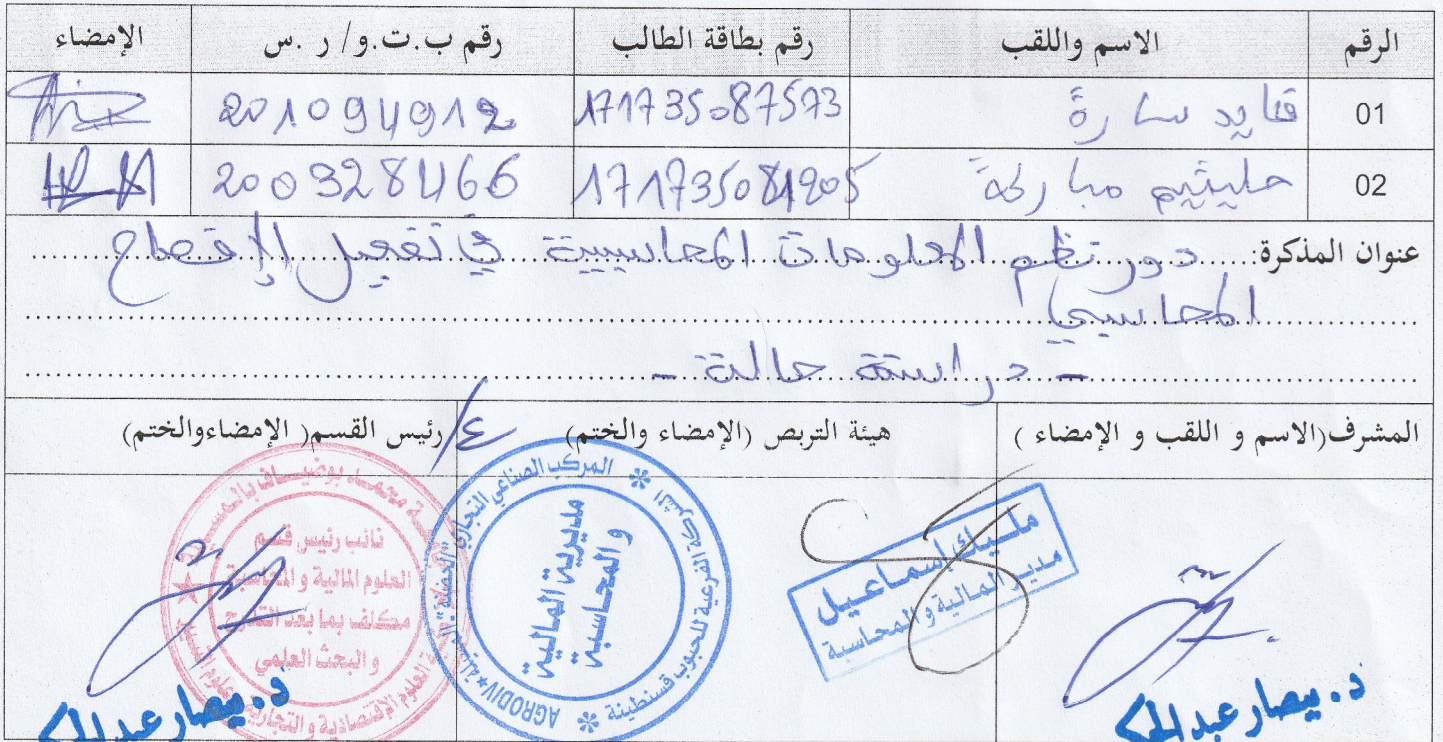 الرقم الاسم واللقب رقم بطاقة الطالب رقم ب.ت.و/ ر .س الإمضاء
01 قايد سارة 171735087573 201094912
02 حليتيم مباركة 171735081905 200328466
عنوان المذكرة: دور نظم المعلومات المحاسبية في تفعيل الإفصاح
المحاسبي
- دراسة حالة -
المشرف(الاسم و اللقب و الإمضاء ) هيئة التربص (الإمضاء والختم) ع/ رئيس القسم( الإمضاءوالختم)
مليك إسماعيل
مدير المالية و المحاسبة
د. بيصار عبد
المركب الصناعي التجاري "الحضنة"
الشركة الفرعية للحبوب قسنطينة
AGRODIV
مديرية المالية
و المحاسبة
محمد بوضياف بالمسيلة
نائب رئيس قسم
العلوم المالية و المحاسبة
مكلف بما بعد التدرج
و البحث العلمي
العلوم الاقتصادية و التجارية و علوم
د. بيصار عبد